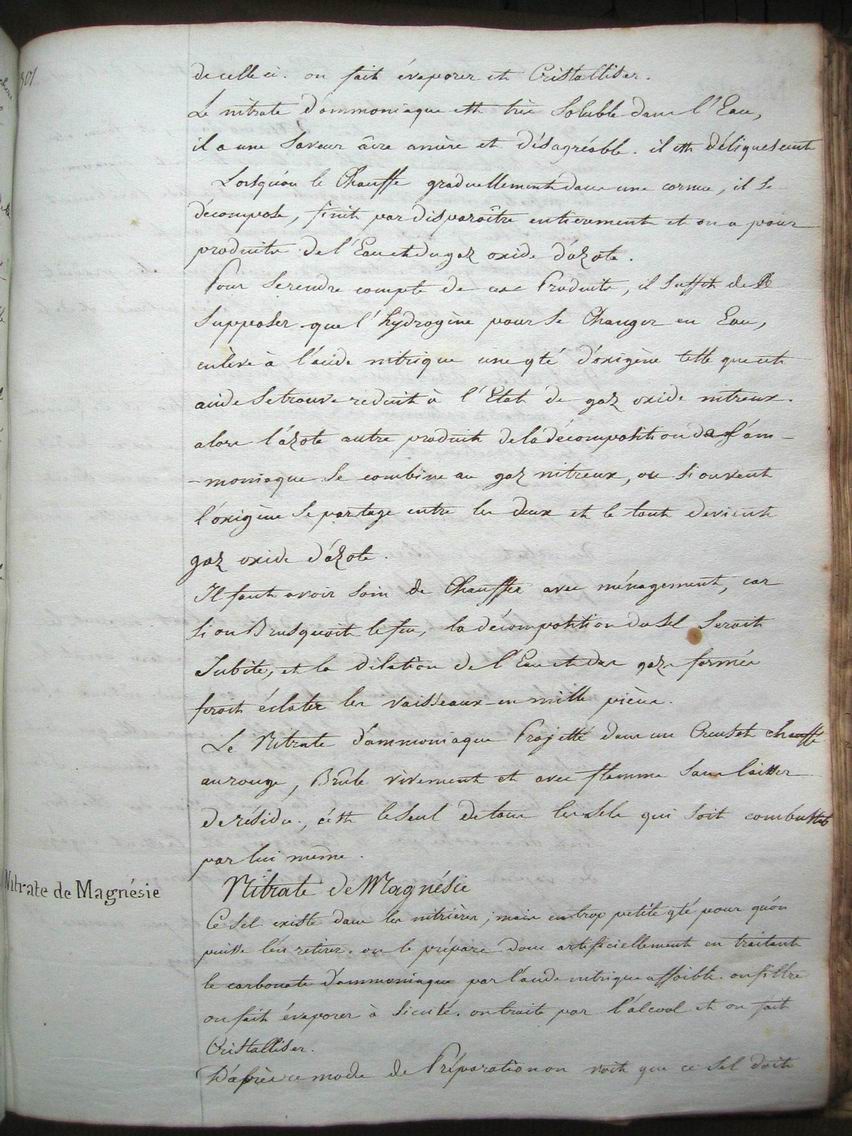 de celle ci. on fait évaporer et Cristalliser.
Le nitrate d'ammoniaque est très Soluble dans l'Eau,
il a une Saveur âcre amère et désagréable. il est déliquescent
Lorsqu'on le Chauffe graduellement dans une cornue, il se
décompose, finit par disparaître entièrement et on a pour
produits de l'Eau et du gaz oxide d'azote.
Pour Se rendre compte de ces Produits, il suffit de
Supposer que l'hydrogène pour se Changer en Eau,
enlève à l'acide nitrique une qté d'oxigène telle que cet
acide Se trouve reduit à l'Etat de gaz oxide nitreux.
alors l'azote autre produit de la décomposition de l'am-
-moniaque Se combine au gaz nitreux, ou si on veut
l'oxigène Se partage entre les deux et le tout devient
gaz oxide d'azote.
Il faut avoir Soin de Chauffer avec ménagement, car
Si on Brusquoit le feu, la décomposition du Sel Seroit
Subite, et la dilation de l'Eau et des gaz formés
feroit éclater les vaisseaux en mille pièces.
Le Nitrate d'ammoniaque Projetté dans un Creuset chauffé
au rouge, Brûle vivement et avec flamme Sans laisser
de résidu, c'est le Seul de tous les sels qui soit combustib
par lui même.
Nitrate de Magnésie
Nitrate de Magnésie
Ce Sel existe dans les nitrières, mais en trop petite qté pour qu'on
puisse l'en retirer. on le prépare donc artificiellement en traitant
le carbonate d'ammoniaque par l'acide nitrique affoibli. on filtre
on fait évaporer à Siccité. on traite par l'alcool et on fait
Cristalliser.
D'après ce mode de Préparation on voit que ce Sel doit